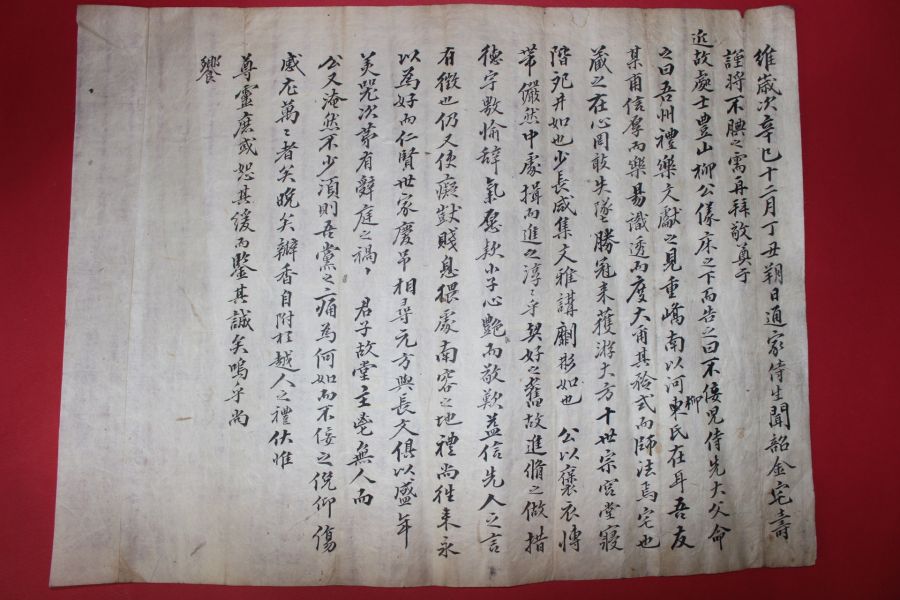 維歲次辛巳十二月丁丑朔日通家侍生聞韶金宅壽
謹將不腆之需再拜敬奠于
近故處士豊山柳公儀床之下而告之曰不佞兒侍先大父命
之曰吾州禮樂文獻之見重嶠南以河柳氏在耳吾友
某甫信厚而樂易識透而度大甫其矜式而師法焉宅也
藏之在心罔敢失墜勝冠來獲游大方十世宗宮堂寢
階戺井如也少長咸集文雅講劘彬如也 公以褒衣博
帶儼然中處揖而進之淳淳乎契好之舊故進脩之做措
德宇敷愉辭氣懇款小子心艶而敬歎益信先人之言
有徵也仍又使癡獃賤息猥處南容之地禮尚往來永
以為好而仁賢世家慶吊相尋元方與長文俱以盛年
美器次第有舜庭之禍 君子故堂主鬯無人而
公又淹然不少須則吾黨之痛為何如而不佞之俛仰傷
感尤萬萬者矣晚矣瓣香自附於越人之禮伏惟
尊靈庶或恕其緩而鑒其誠矣嗚乎尚
饗